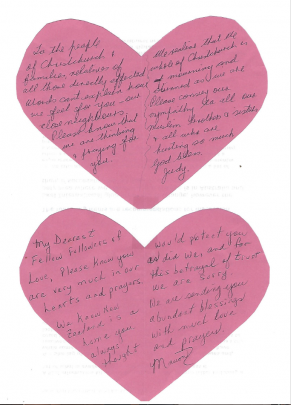 To the people
of Christchurch &
families, relatives of
all those directly affected
Words can't explain how
we feel for you - our
close neighbours.
Please know that
we are thinking
& praying for
you.
We realise that the
whole of Christchurch is
mourning and
stunned as we are
Please convey our
sympathy to all our
Muslim brothers & sisters
& all who are
hurting so much
God bless
Judy.
My Dearest
Fellow Followers of
Love, Please know you
are very much in our
hearts and prayers
We know New
Zealand is a
home you
always
thought
would protect you
as did we, and for
this betrayal of trust
we are sorry.
We are sending you
abundant blessings
with much love
and prayers